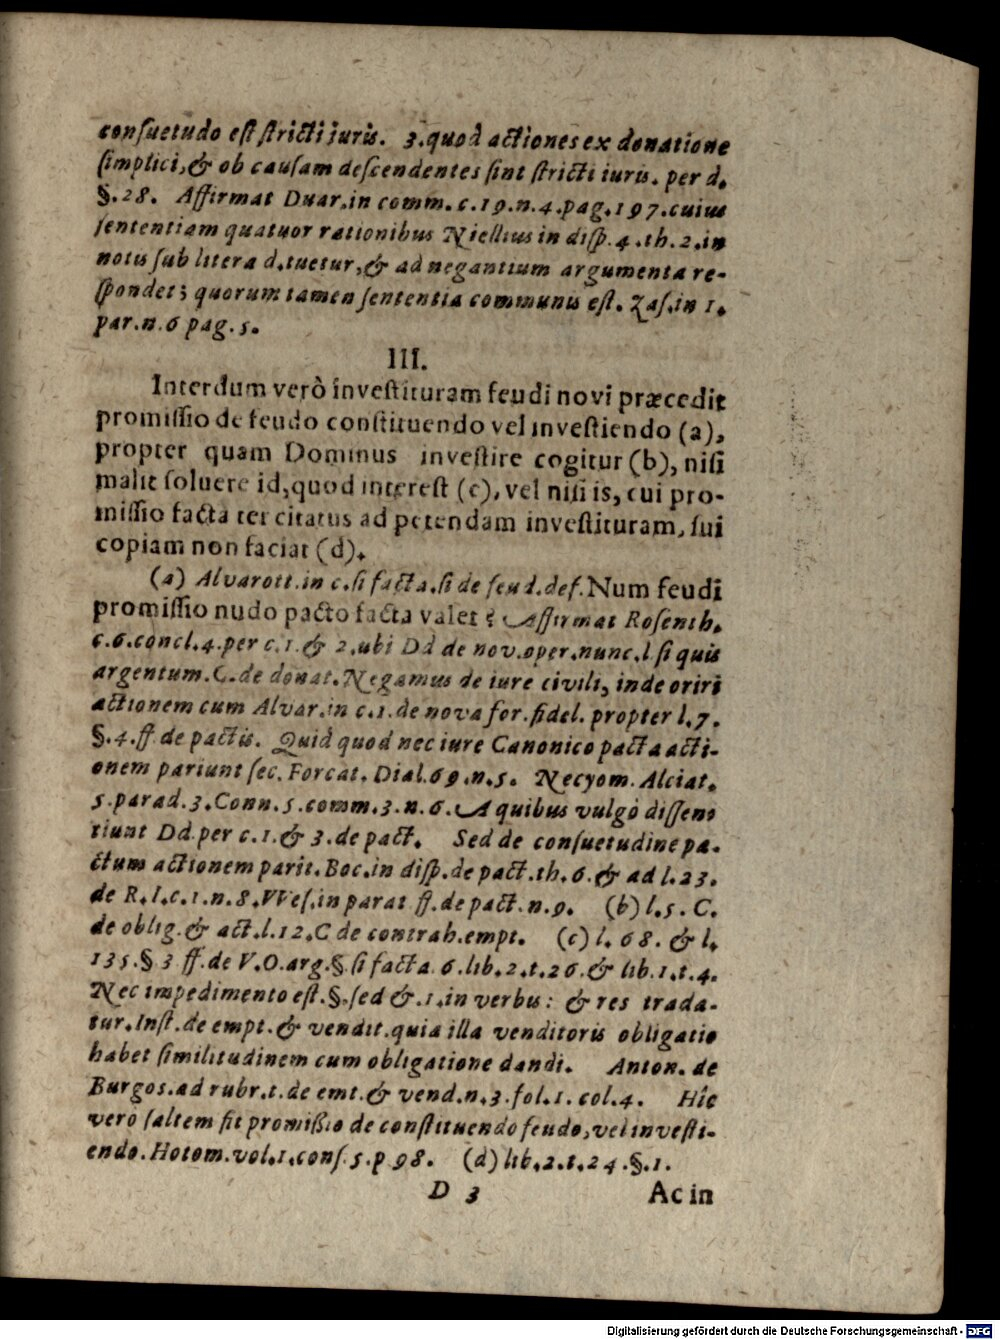 conſuetudo eſt ſtricti juris. 3. quod actiones ex donatione
ſimplici, & ob cauſam deſcendentes ſint ſtricti iuris. per d.
§. 28. Affirmat Duar. in comm. c. 19. n. 4. pag. 197. cuius
ſententiam quatuor rationibus Niellius in diſp. 4. th. 2. in
notis ſub litera d. tuetur, & ad negantium argumenta re-
ſpondet; quorum tamen ſententia communis eſt. Zaſ. in 1.
par. n. 6 pag. 5.
III.
Interdum verò inveſtituram feudi novi præcedit
promiſſio de feudo conſtituendo vel inveſtiendo (a),
propter quam Dominus inveſtire cogitur (b), niſi
malit ſoluere id, quod intereſt (c), vel niſi is, cui pro-
miſſio facta ter citatus ad petendam inveſtituram, ſui
copiam non faciat (d).
(a) Alvarott. in c. ſi facta. ſi de feud. def. Num feudi
promiſſio nudo pacto facta valet? Affirmat Roſenth.
c. 6. concl. 4. per c. 1. & 2. ubi Dd de nov. oper. nunc. l ſi quis
argentum. C. de donat. Negamus de iure civili, inde oriri
actionem cum Alvar. in c. 1. de nova for. fidel. propter l. 7.
§. 4. ff. de pactis. Quid quod nec iure Canonico pacta acti-
onem pariunt ſec. Forcat. Dial. 69. n. 5. Necyom. Alciat.
5. parad. 3. Conn. 5. comm. 3. n. 6. A quibus vulgò diſſen-
tiunt Dd. per c. 1. & 3. de pact. Sed de conſuetudine pa-
ctum actionem parit. Boc. in diſp. de pact. th. 6. & ad l. 23.
de R. I. c. 1. n. 8. VVeſ. in parat ff. de pact. n. 9. (b) l. 5. C.
de oblig. & act. l. 12. C de contrah. empt. (c) l. 68. & l.
135. § 3 ff. de V. O. arg. §. ſi facta. 6. lib. 2. t. 26. & lib. 1. t. 4.
Nec impedimento eſt. §. ſed &. 1. in verbis: & res trada-
tur. Inſt. de empt. & vendit. quia illa venditoris obligatio
habet ſimilitudinem cum obligatione dandi. Anton. de
Burgos. ad rubr. t. de emt. & vend. n. 3. fol. 1. col. 4. Hîc
vero ſaltem fit promißio de conſtituendo feudo, vel inveſti-
endo. Hotom. vol. 1. conſ. 5. p 98. (d) lib. 2. t. 24. §. 1.
D 3 Ac in
Digitalisierung gefördert durch die Deutsche Forschungsgemeinschaft - DFG